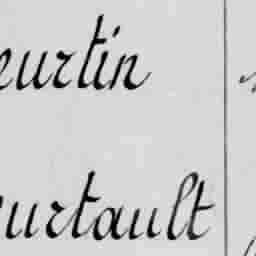 eurtin
urtault